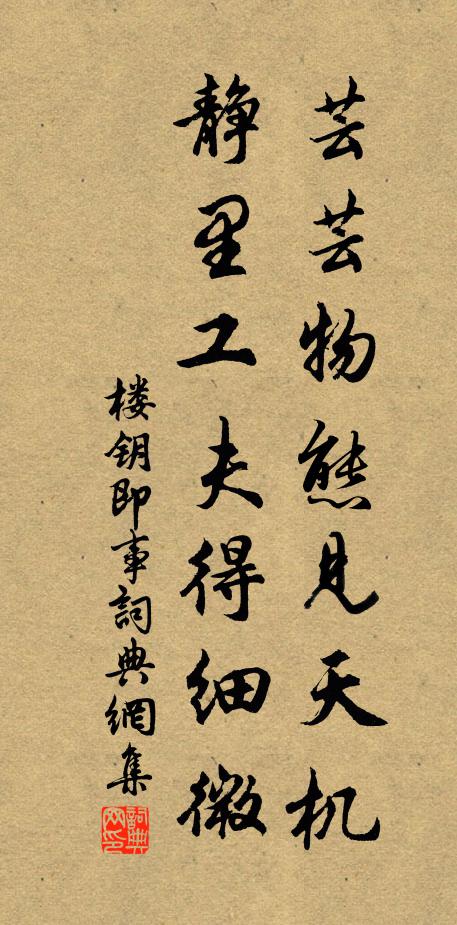 芸芸物態見天机
静里工夫得细微
楼钥即事詞典網集
詞典网印